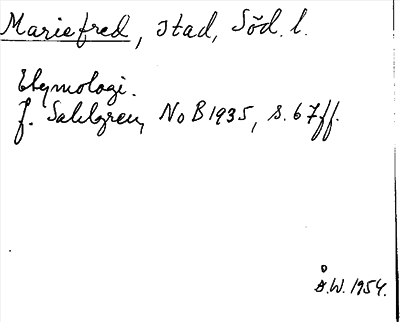 Mariefred, stad, Söd. l.
Etymologi.
J. Sahlgren, NoB 1935, s. 67ff.
Å.W. 1954.